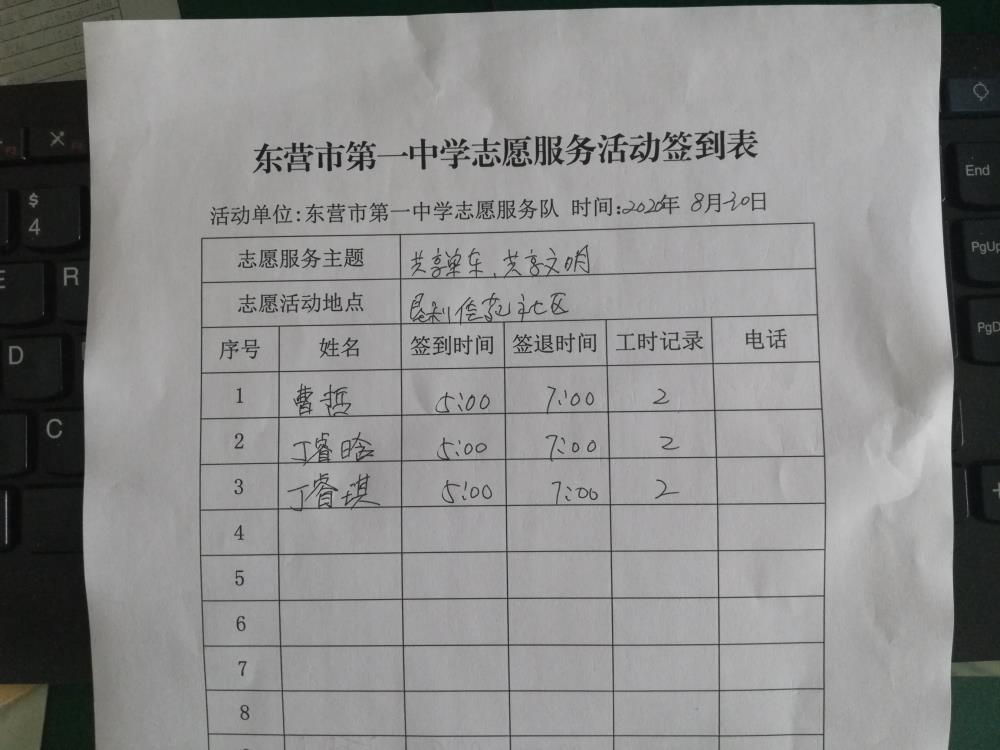 东营市第一中学志愿服务活动签到表
活动单位:东营市第一中学志愿服务队 时间:2020年 8月30日
志愿服务主题 共享单车、共享文明
志愿活动地点 垦利 社区
序号 姓名 签到时间 签退时间 工时记录 电话
1 曹哲 5:00 7:00 2
2 丁睿晗 5:00 7:00 2
3 丁睿琪 5:00 7:00 2
4
5
6
7
8
$
4
E
R
D
C
End
PgUp
PgD